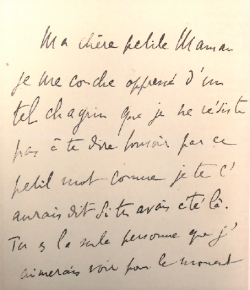 Ma chère petite Maman
je me couche oppressé d'un
tel chagrin que je ne résiste
pas à te dire bonsoir par ce
petit mot comme je te l'
aurais dit si tu avais été là.
Tu es la seule personne que j'
aimerais voir pour le moment